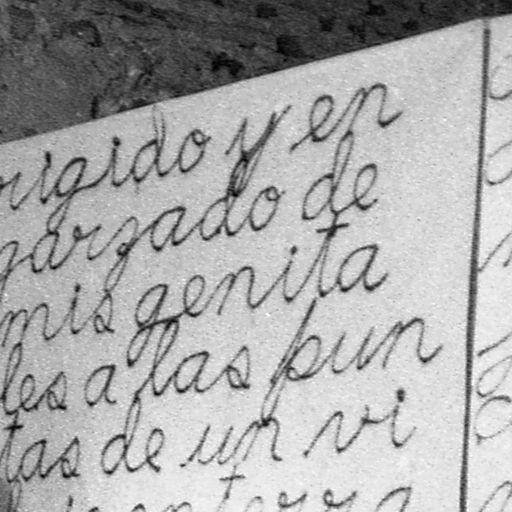 rigido y en
garzado de
mis genita
les a las pun
tas de un vi